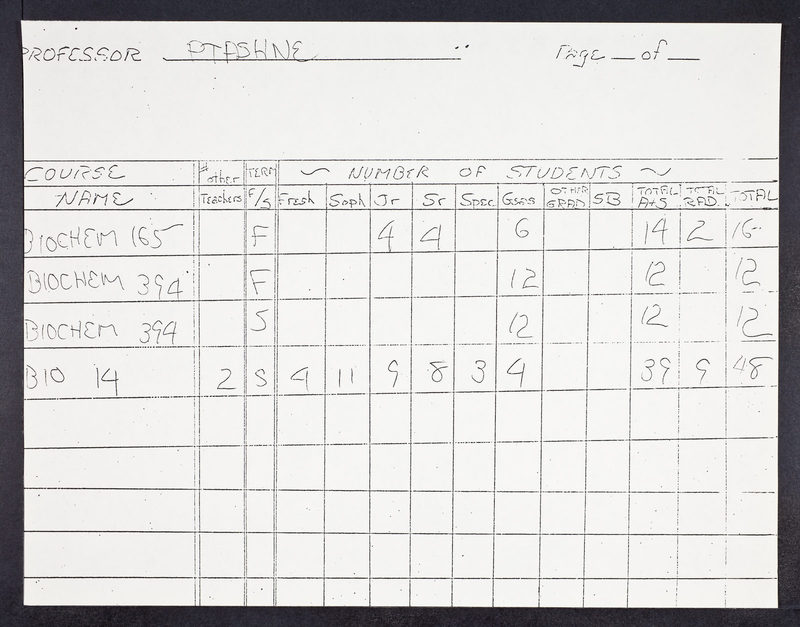 PROFESSOR PTASHNE Page __ of __
COURSE # other TERM ~ NUMBER OF STUDENTS ~
NAME Teachers F/S Fresh Soph Jr Sr Spec. GSAS OTHER GRAD SB TOTAL A+S TOTAL RAD. TOTAL
BIOCHEM 165 F 4 4 6 14 2 16
BIOCHEM 394 F 12 12 12
BIOCHEM 394 S 12 12 12
BIO 14 2 S 4 11 9 8 3 4 39 9 48